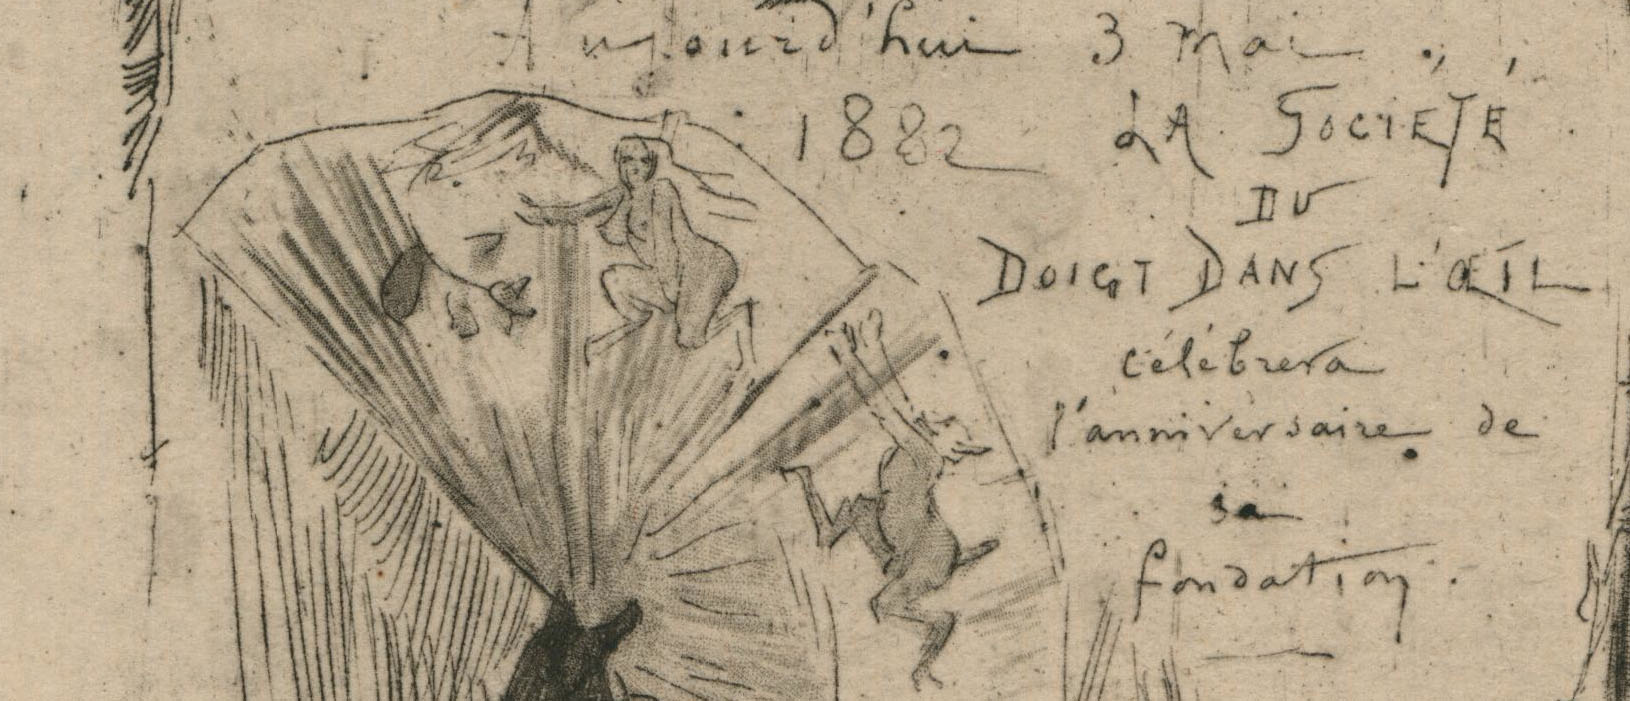 Aujourd'hui 3 Mai.,
1882 LA SOCIÉTÉ
DU
DOIGT DANS L'ŒIL
célébrera
l'anniversaire de
sa
fondation.